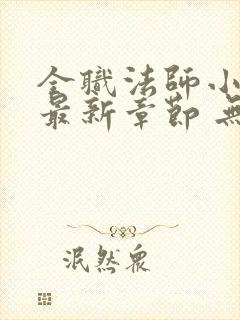 全職法師小
最新章節 無
泯然眾